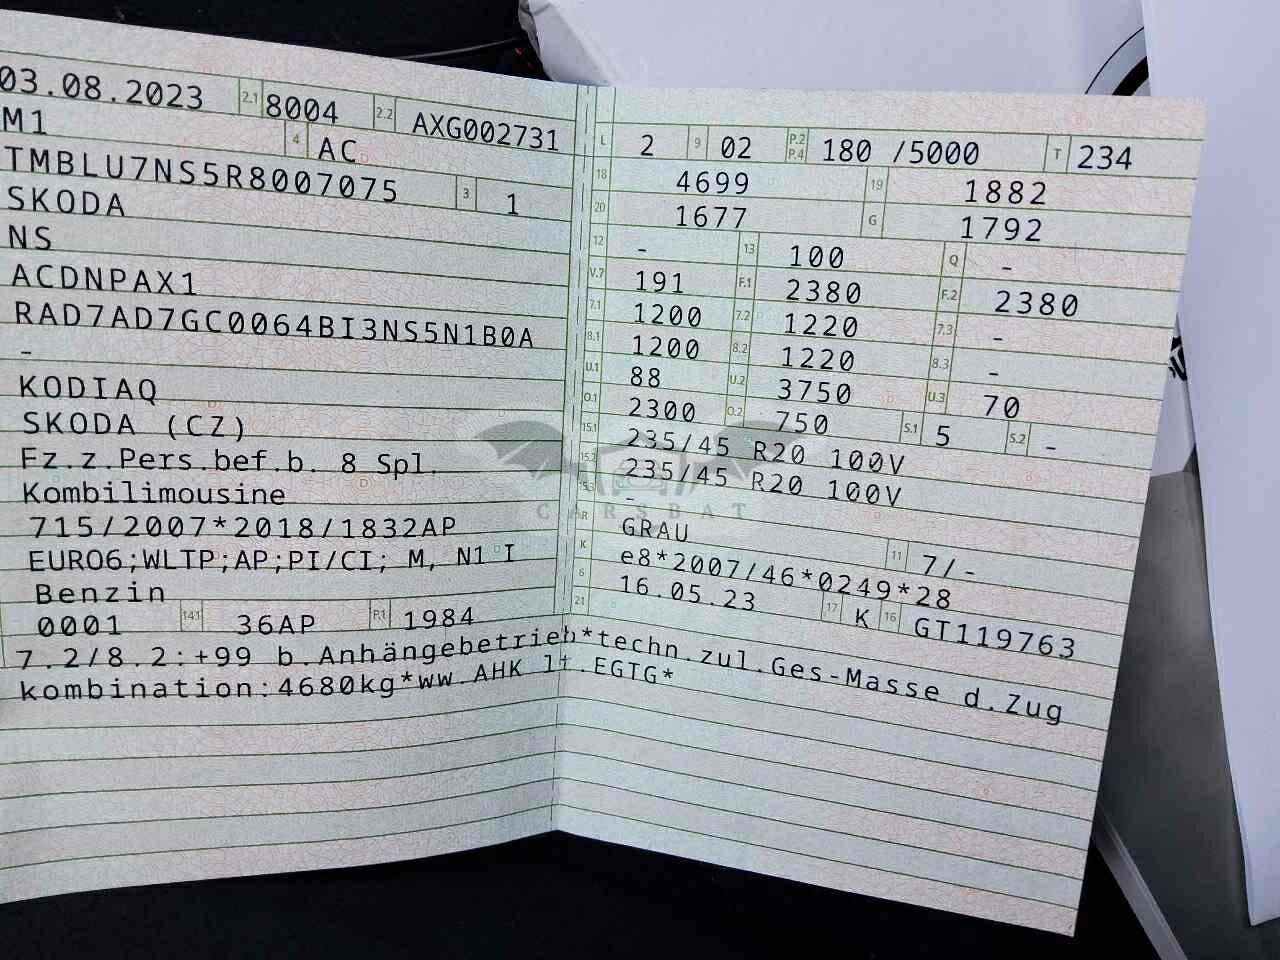 03.08.2023 2.1 8004 2.2 AXG002731
M1 4 AC
TMBLU7NS5R8007075 3 1
SKODA
NS
ACDNPAX1
RAD7AD7GC0064BI3NS5N1B0A
-
KODIAQ
SKODA (CZ)
Fz.z.Pers.bef.b. 8 Spl.
Kombilimousine
715/2007*2018/1832AP
EURO6;WLTP;AP;PI/CI; M, N1 I
Benzin
0001 14.1 36AP P.1 1984
L 2 9 02 P.2 P.4 180 /5000 T 234
18 4699 19 1882
20 1677 G 1792
12 - 13 100 Q -
V.7 191 F.1 2380 F.2 2380
7.1 1200 7.2 1220 7.3 -
8.1 1200 8.2 1220 8.3 -
U.1 88 U.2 3750 U.3 70
O.1 2300 O.2 750 S.1 5 S.2 -
15.1 235/45 R20 100V
15.2 235/45 R20 100V
15.3 -
R GRAU 11 7/-
K e8*2007/46*0249*28
6 16.05.23 17 K 16 GT119763
21
7.2/8.2:+99 b.Anhängebetrieb*techn.zul.Ges-Masse d.Zug
kombination:4680kg*ww.AHK lt.EGTG*
CARSBAT